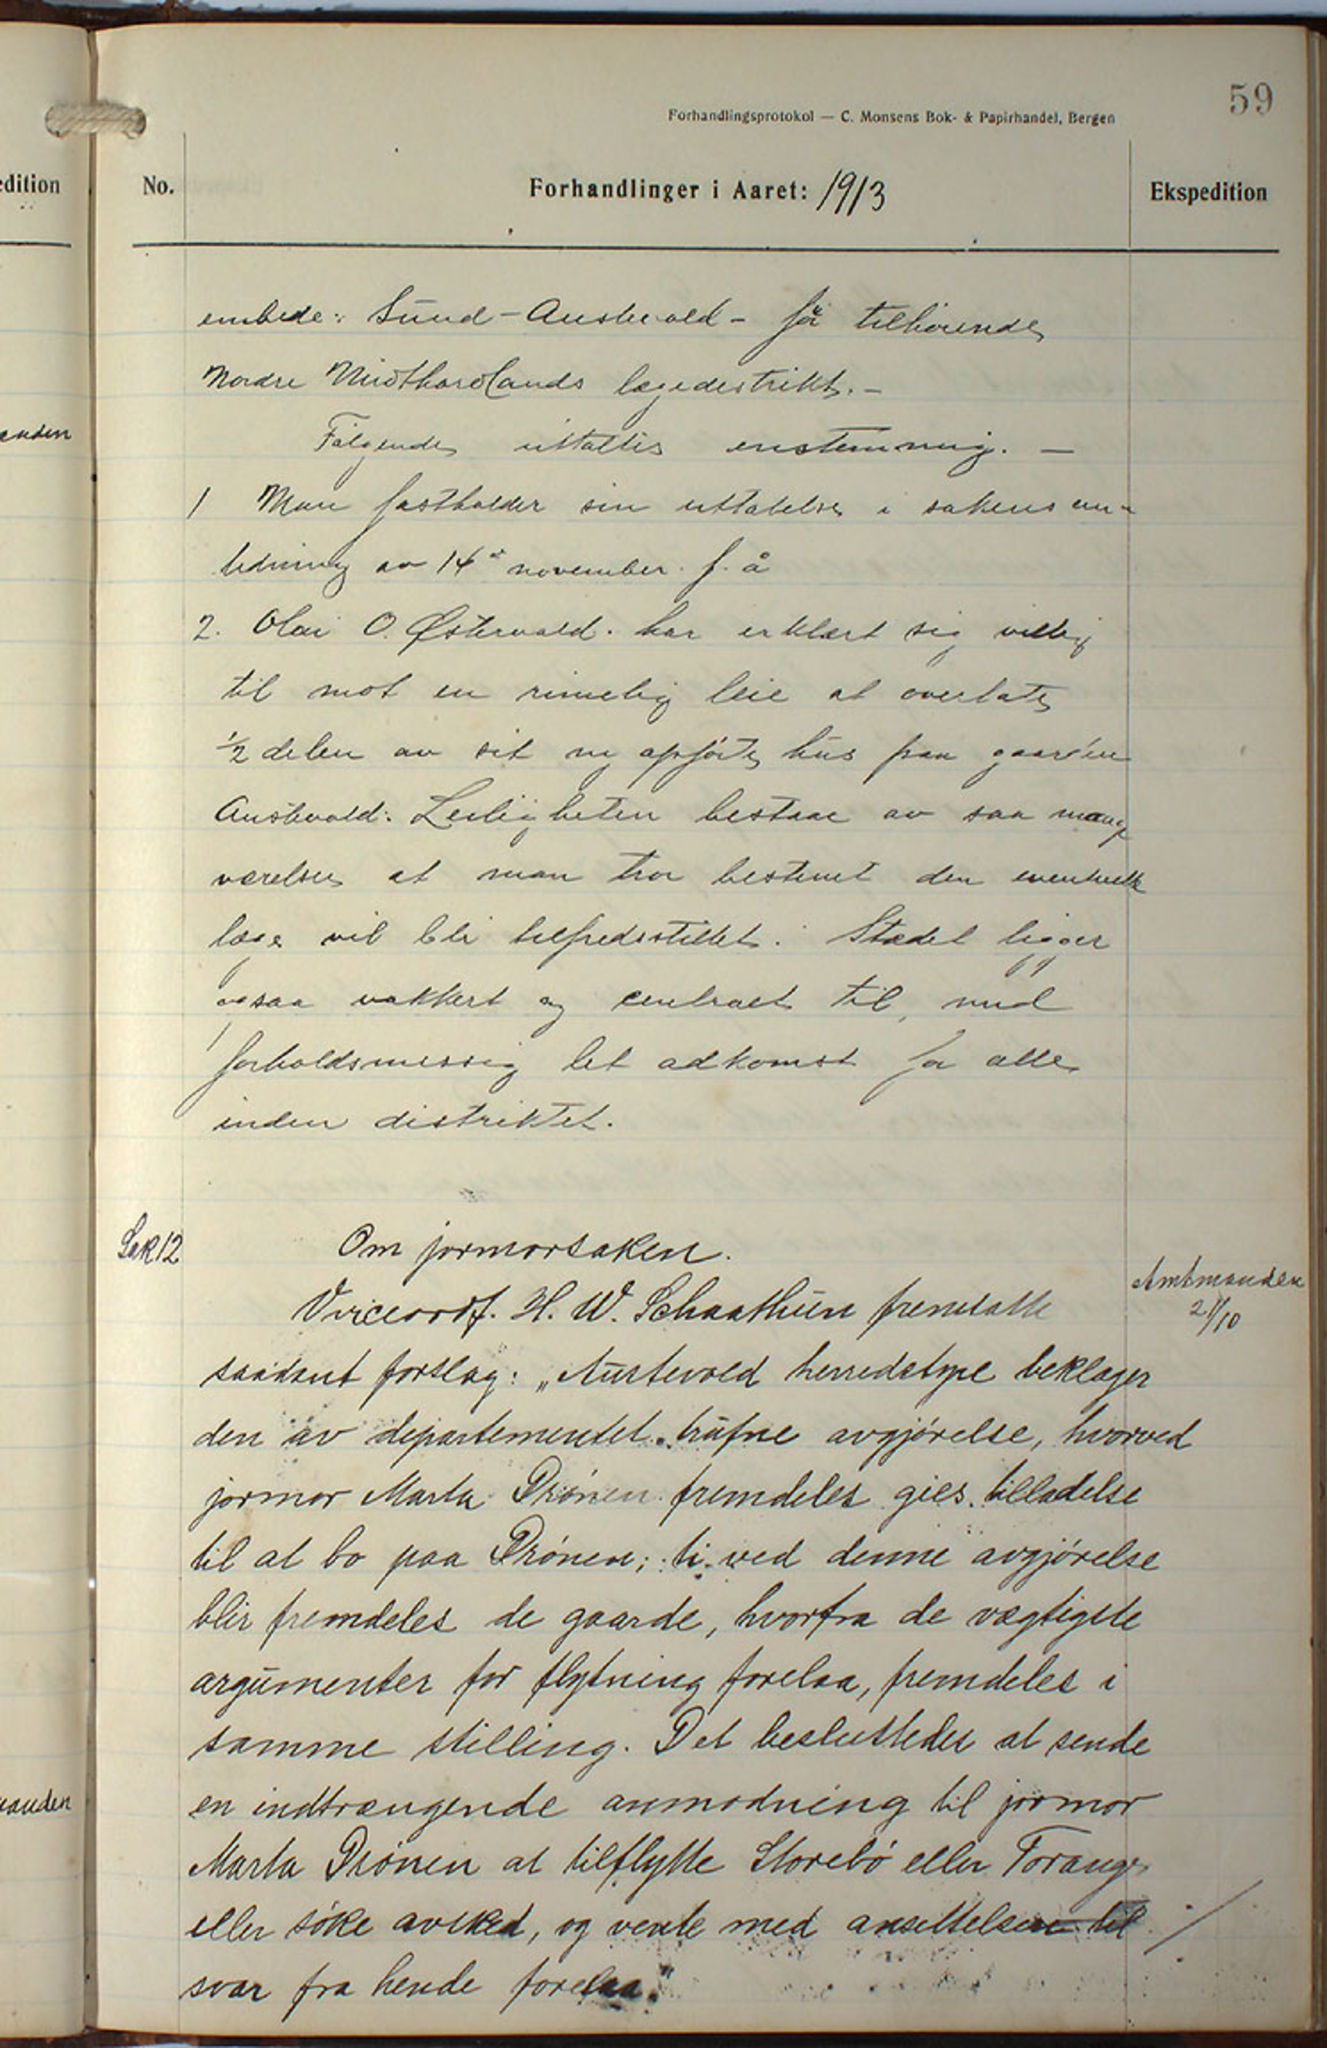 59
Forhandlingsprotokol — C. Monsens Bok- & Papirhandel, Bergen
edition
No.
Forhandlinger i Aaret: 1913
Ekspedition
embede: Sund-Austevold- før tilhørende
Nordre Midthordlands lægedestrikt.—
Følgende uttaltes enstemmig. —
1 Man fastholder sin uttalelse i sakens an-
ledning av 14de november f. å
2. Olai O. Østervold. har erklært sig villig
til mot en rimelig leie at overlate
1/2 delen av sit ny opførte hus paa gaarden
Austevold. Leiligheten bestaar av saa mange
værelser at man tror bestemt den eventuelle
læge vil bli tilfredsstillet. Stædet ligger
ogsaa vakkert og centralt til, med
forholdsmessig let adkomst for alle
inden distriktet.
Sak 12
Om jormorsaken.
Viceordf. H. W. Schaathun fremsatte
Amtmanden
21/10
saadant forslag: „Austevold herredstyre beklager
den av departementet trufne avgjørelse, hvorved
jormor Marta Drönen fremdeles gies tilladelse
til at bo paa Drönen; ti ved denne avgjørelse
blir fremdeles de gaarde, hvorfra de vægtigste
argumenter for flytning forelaa, fremdeles i
samme stilling. Det besluttedes at sende
en indtrængende anmodning til jormor
Marta Drönen at tilflytte Storebø eller Torange
eller søke avsked, og vente med ansettelsen til
svar fra hende forelaa."